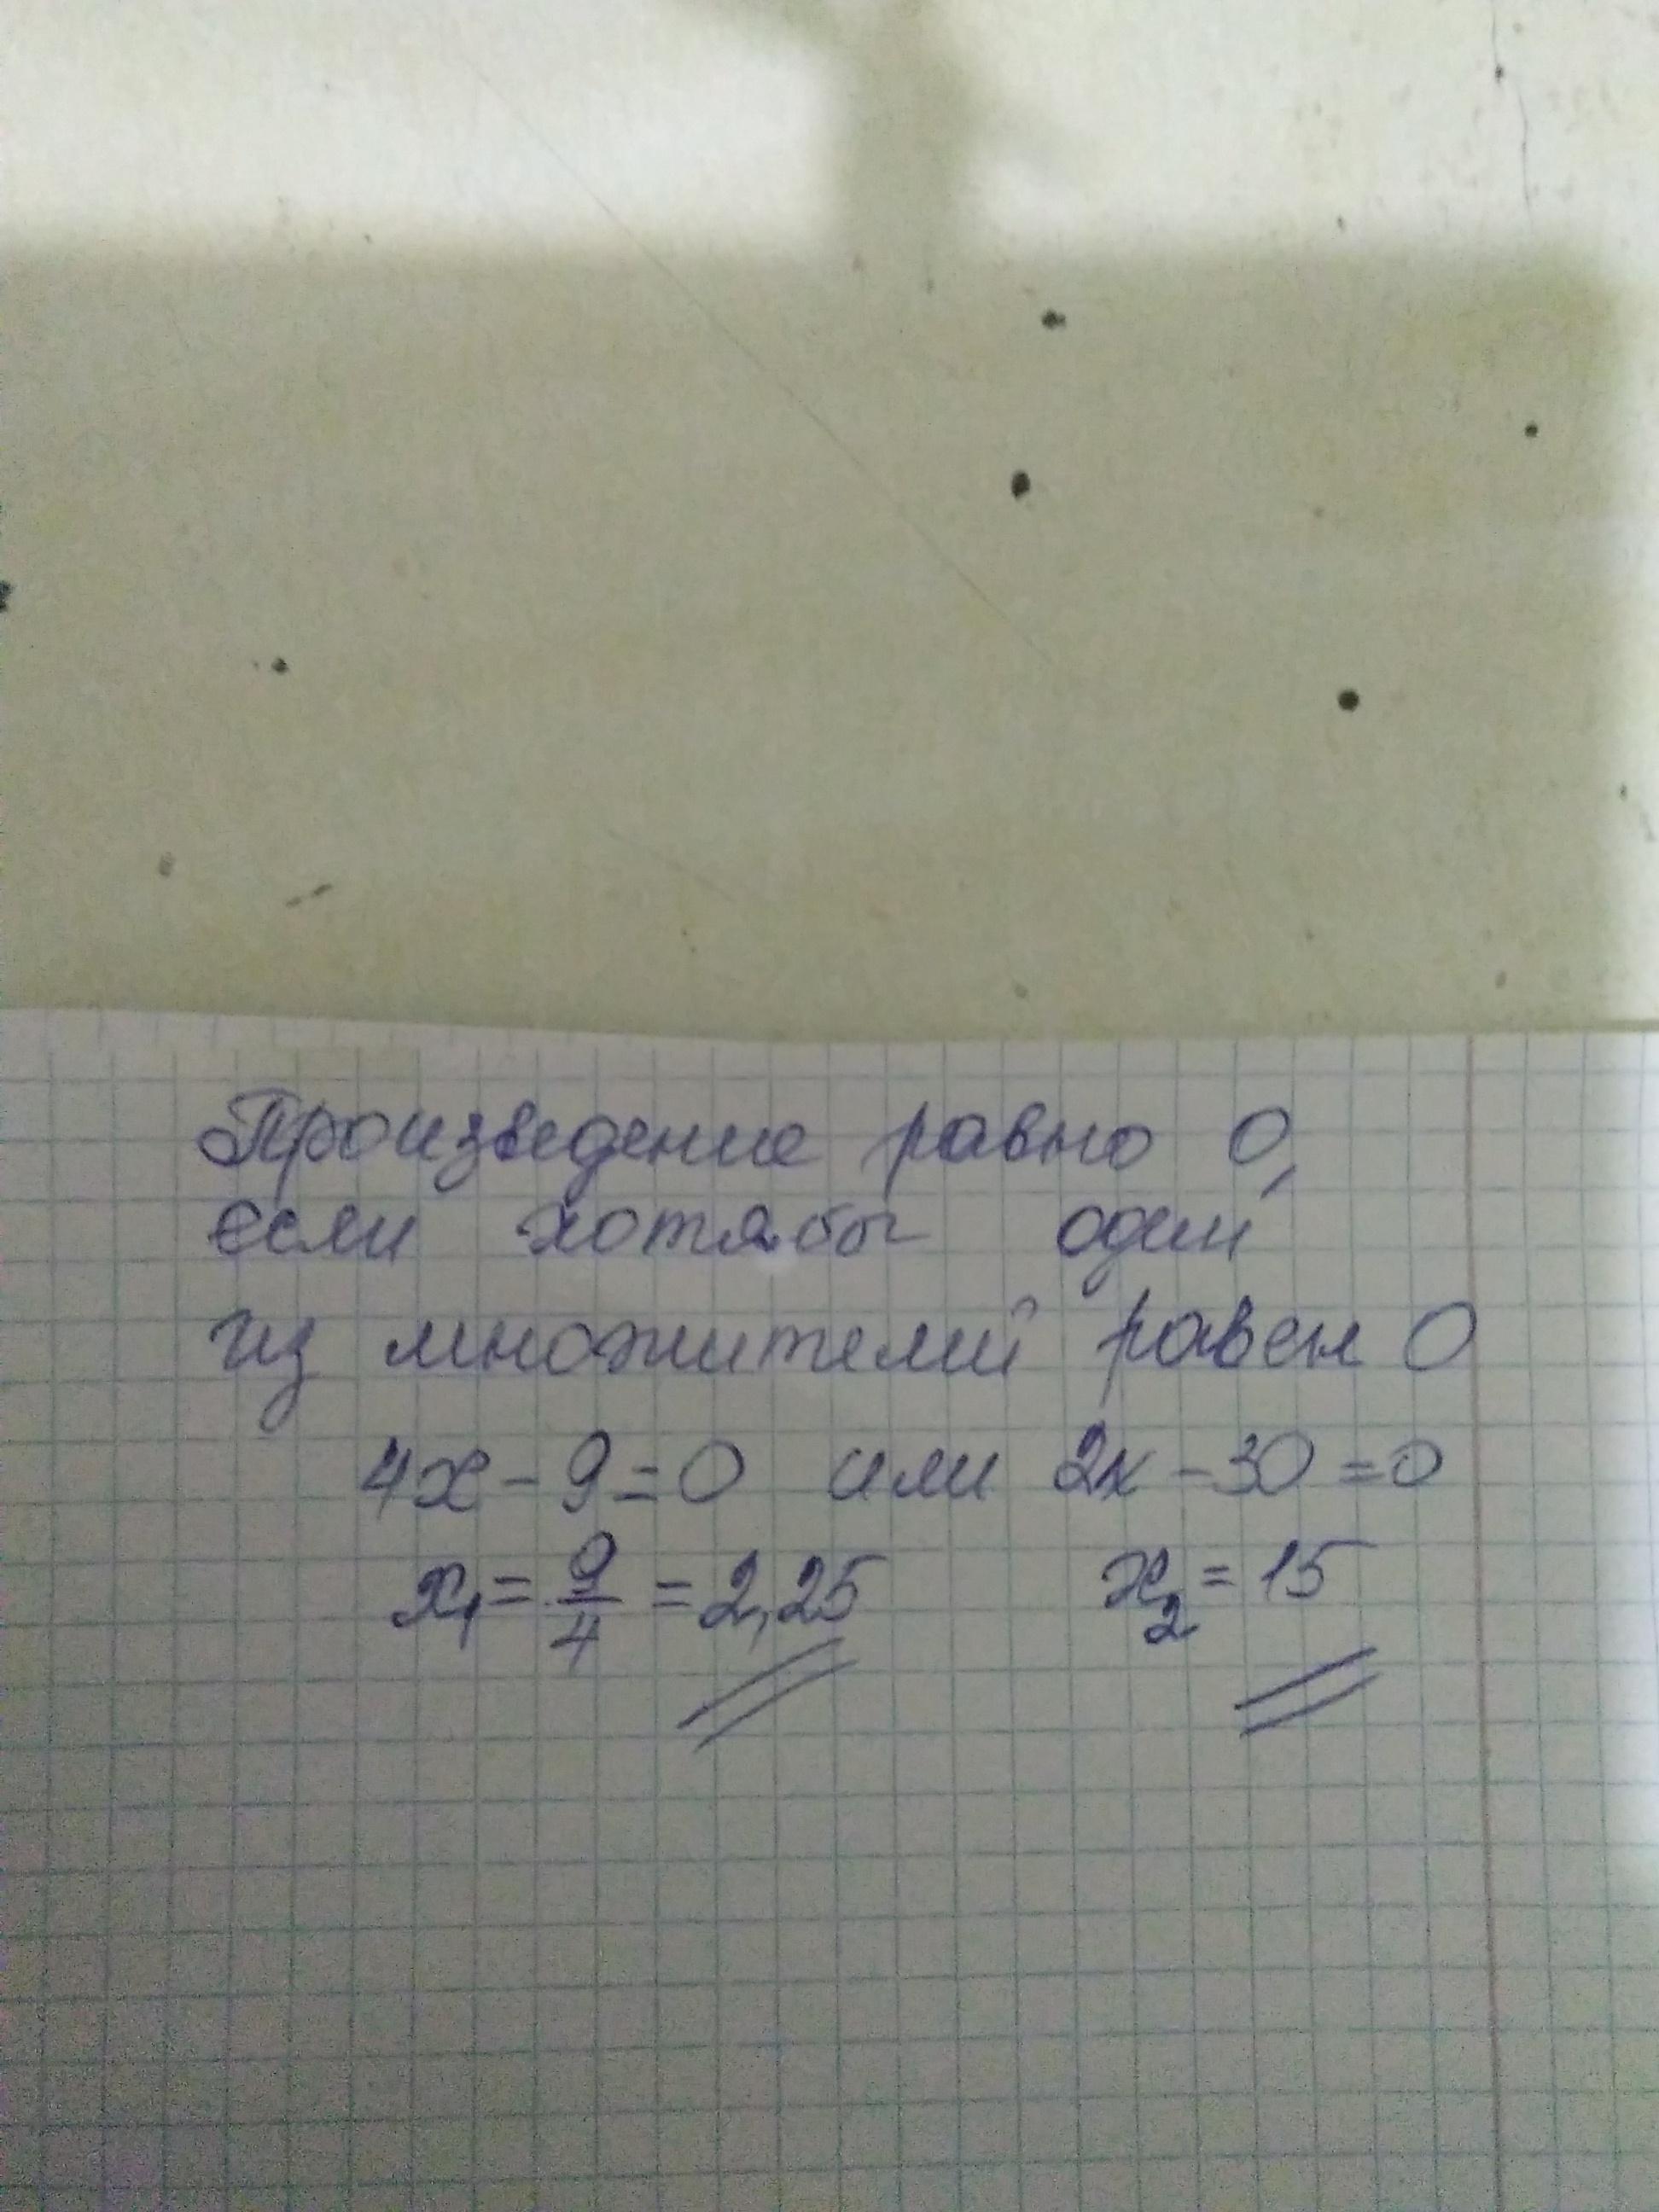 Произведение равно 0,
если хотя бы один
из множителей равен 0
4x - 9 = 0 или 2x - 30 = 0
x₁ = 9/4 = 2,25 x₂ = 15